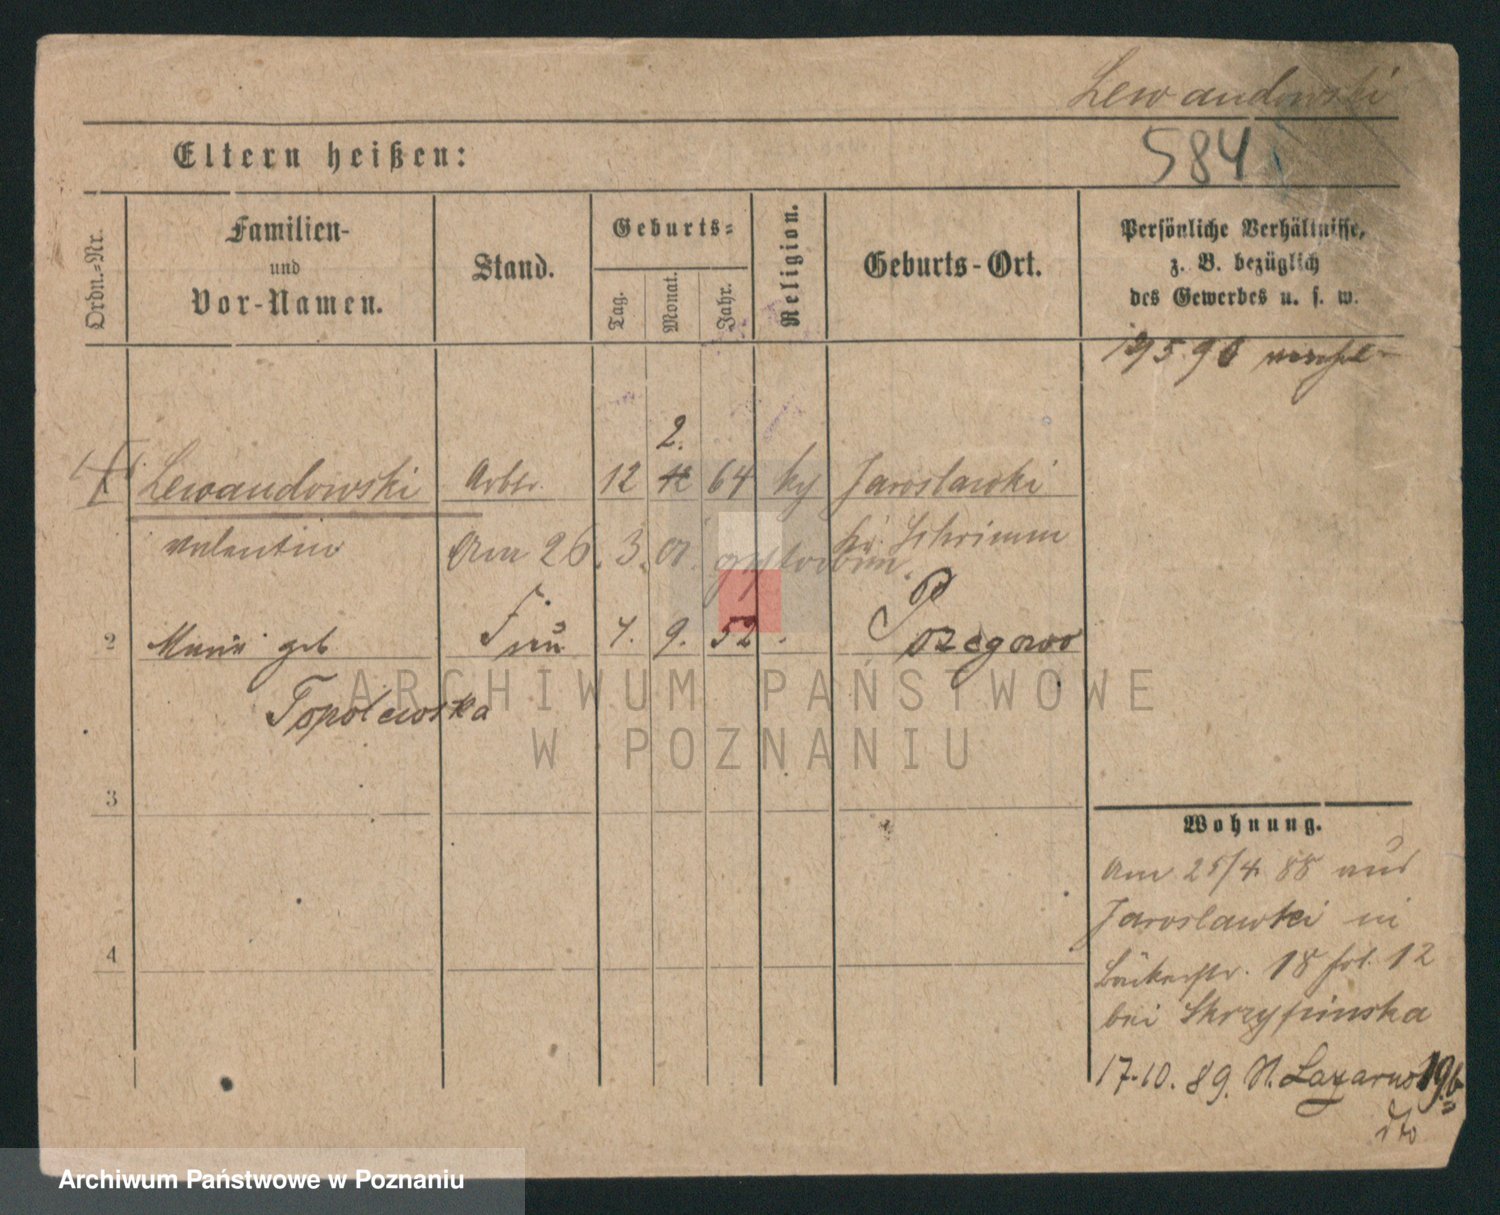 Lewandowski
584
Eltern heißen:
Ordn.-Nr.
Familien-
und
Vor-Namen.
Stand.
Geburts-
Tag.
Monat.
Jahr.
Religion.
Geburts-Ort.
Persönliche Verhältnisse,
z. B. bezüglich
des Gewerbes u. s. w.
2.
Lewandowski Arbtr. 12 64 Jaroslawki
Valentin Am 26. 3. 01. gestorben. Schrimm
2 Marie geb Frau 7. 9. 52 Pszegowo
Topolewska
3
4
Wohnung.
Am 25/4 88 aus
Jaroslawki in
Bäckerstr. 18 fol. 12
bei Skrzypinska
17.10.89. St. Lazarus 19b
ARCHIWUM PAŃSTWOWE
W POZNANIU
Archiwum Państwowe w Poznaniu